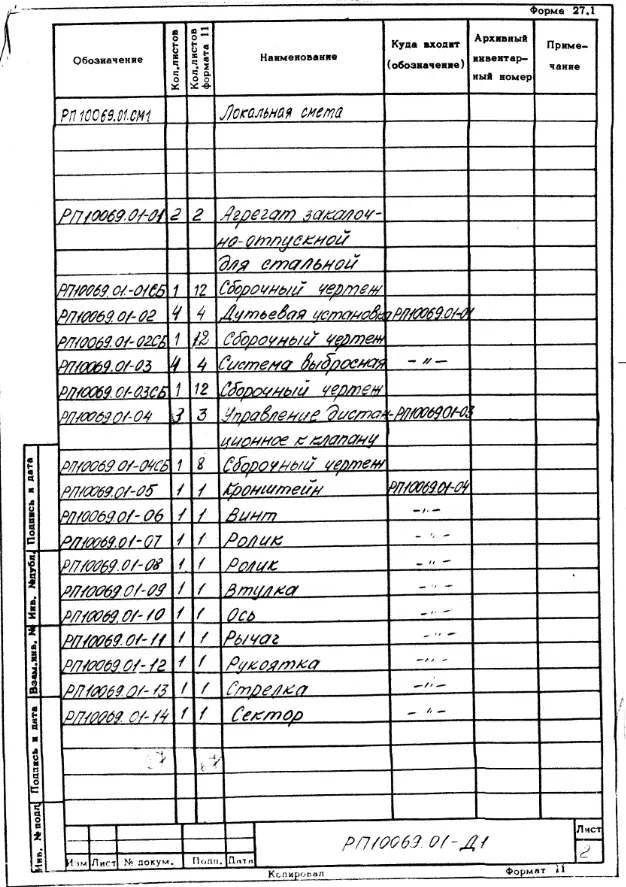 Форма 27.1
Обозначение Кол.листов Кол.листов формата 11 Наименование Куда входит (обозначение) Архивный инвентар-ный номер Приме-чание
РП10069.01.СМ1 Локальная смета
РП10069.01-01 2 2 Агрегат закалоч-
но-отпускной
для стальной
РП10069.01-01СБ 1 12 Сборочный чертеж
РП10069.01-02 4 4 Дутьевая установка РП10069.01-01
РП10069.01-02СБ 1 12 Сборочный чертеж
РП10069.01-03 4 4 Система выбросная - " -
РП10069.01-03СБ 1 12 Сборочный чертеж
РП10069.01-04 3 3 Управление дистан- РП10069.01-03
ционное к клапану
РП10069.01-04СБ 1 8 Сборочный чертеж
РП10069.01-05 1 1 Кронштейн РП10069.01-04
РП10069.01-06 1 1 Винт - " -
РП10069.01-07 1 1 Ролик - " -
РП10069.01-08 1 1 Ролик - " -
РП10069.01-09 1 1 Втулка - " -
РП10069.01-10 1 1 Ось - " -
РП10069.01-11 1 1 Рычаг - " -
РП10069.01-12 1 1 Рукоятка - " -
РП10069.01-13 1 1 Стрелка - " -
РП10069.01-14 1 1 Сектор - " -
Инв. № подл. Подпись и дата Взам.инв. № Инв. № дубл. Подпись и дата
РП10069.01-Д1
Лист
2
Изм Лист № докум. Подп. Дата
Копировал Формат 11